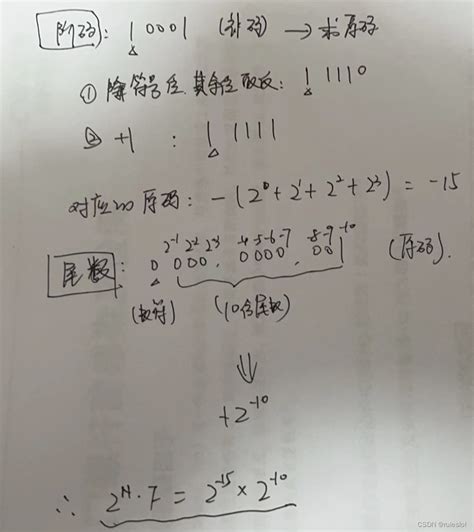 阶码: 1 0001 (补码) → 求原码
① 除符号位 其余位取反: 1 1110
② +1 : 1 1111
对应的原码: -(2⁰+2¹+2²+2³) = -15
2⁻¹ 2⁻² 2⁻³ -4 -5 -6 -7 -8 -9 -10
尾数: 0 000, 0000, 001 (原码).
(数符) (10位尾数)
⇓
+2⁻¹⁰
∴ 2ᴺ·F = 2⁻¹⁵ × 2⁻¹⁰
CSDN @ruleslol